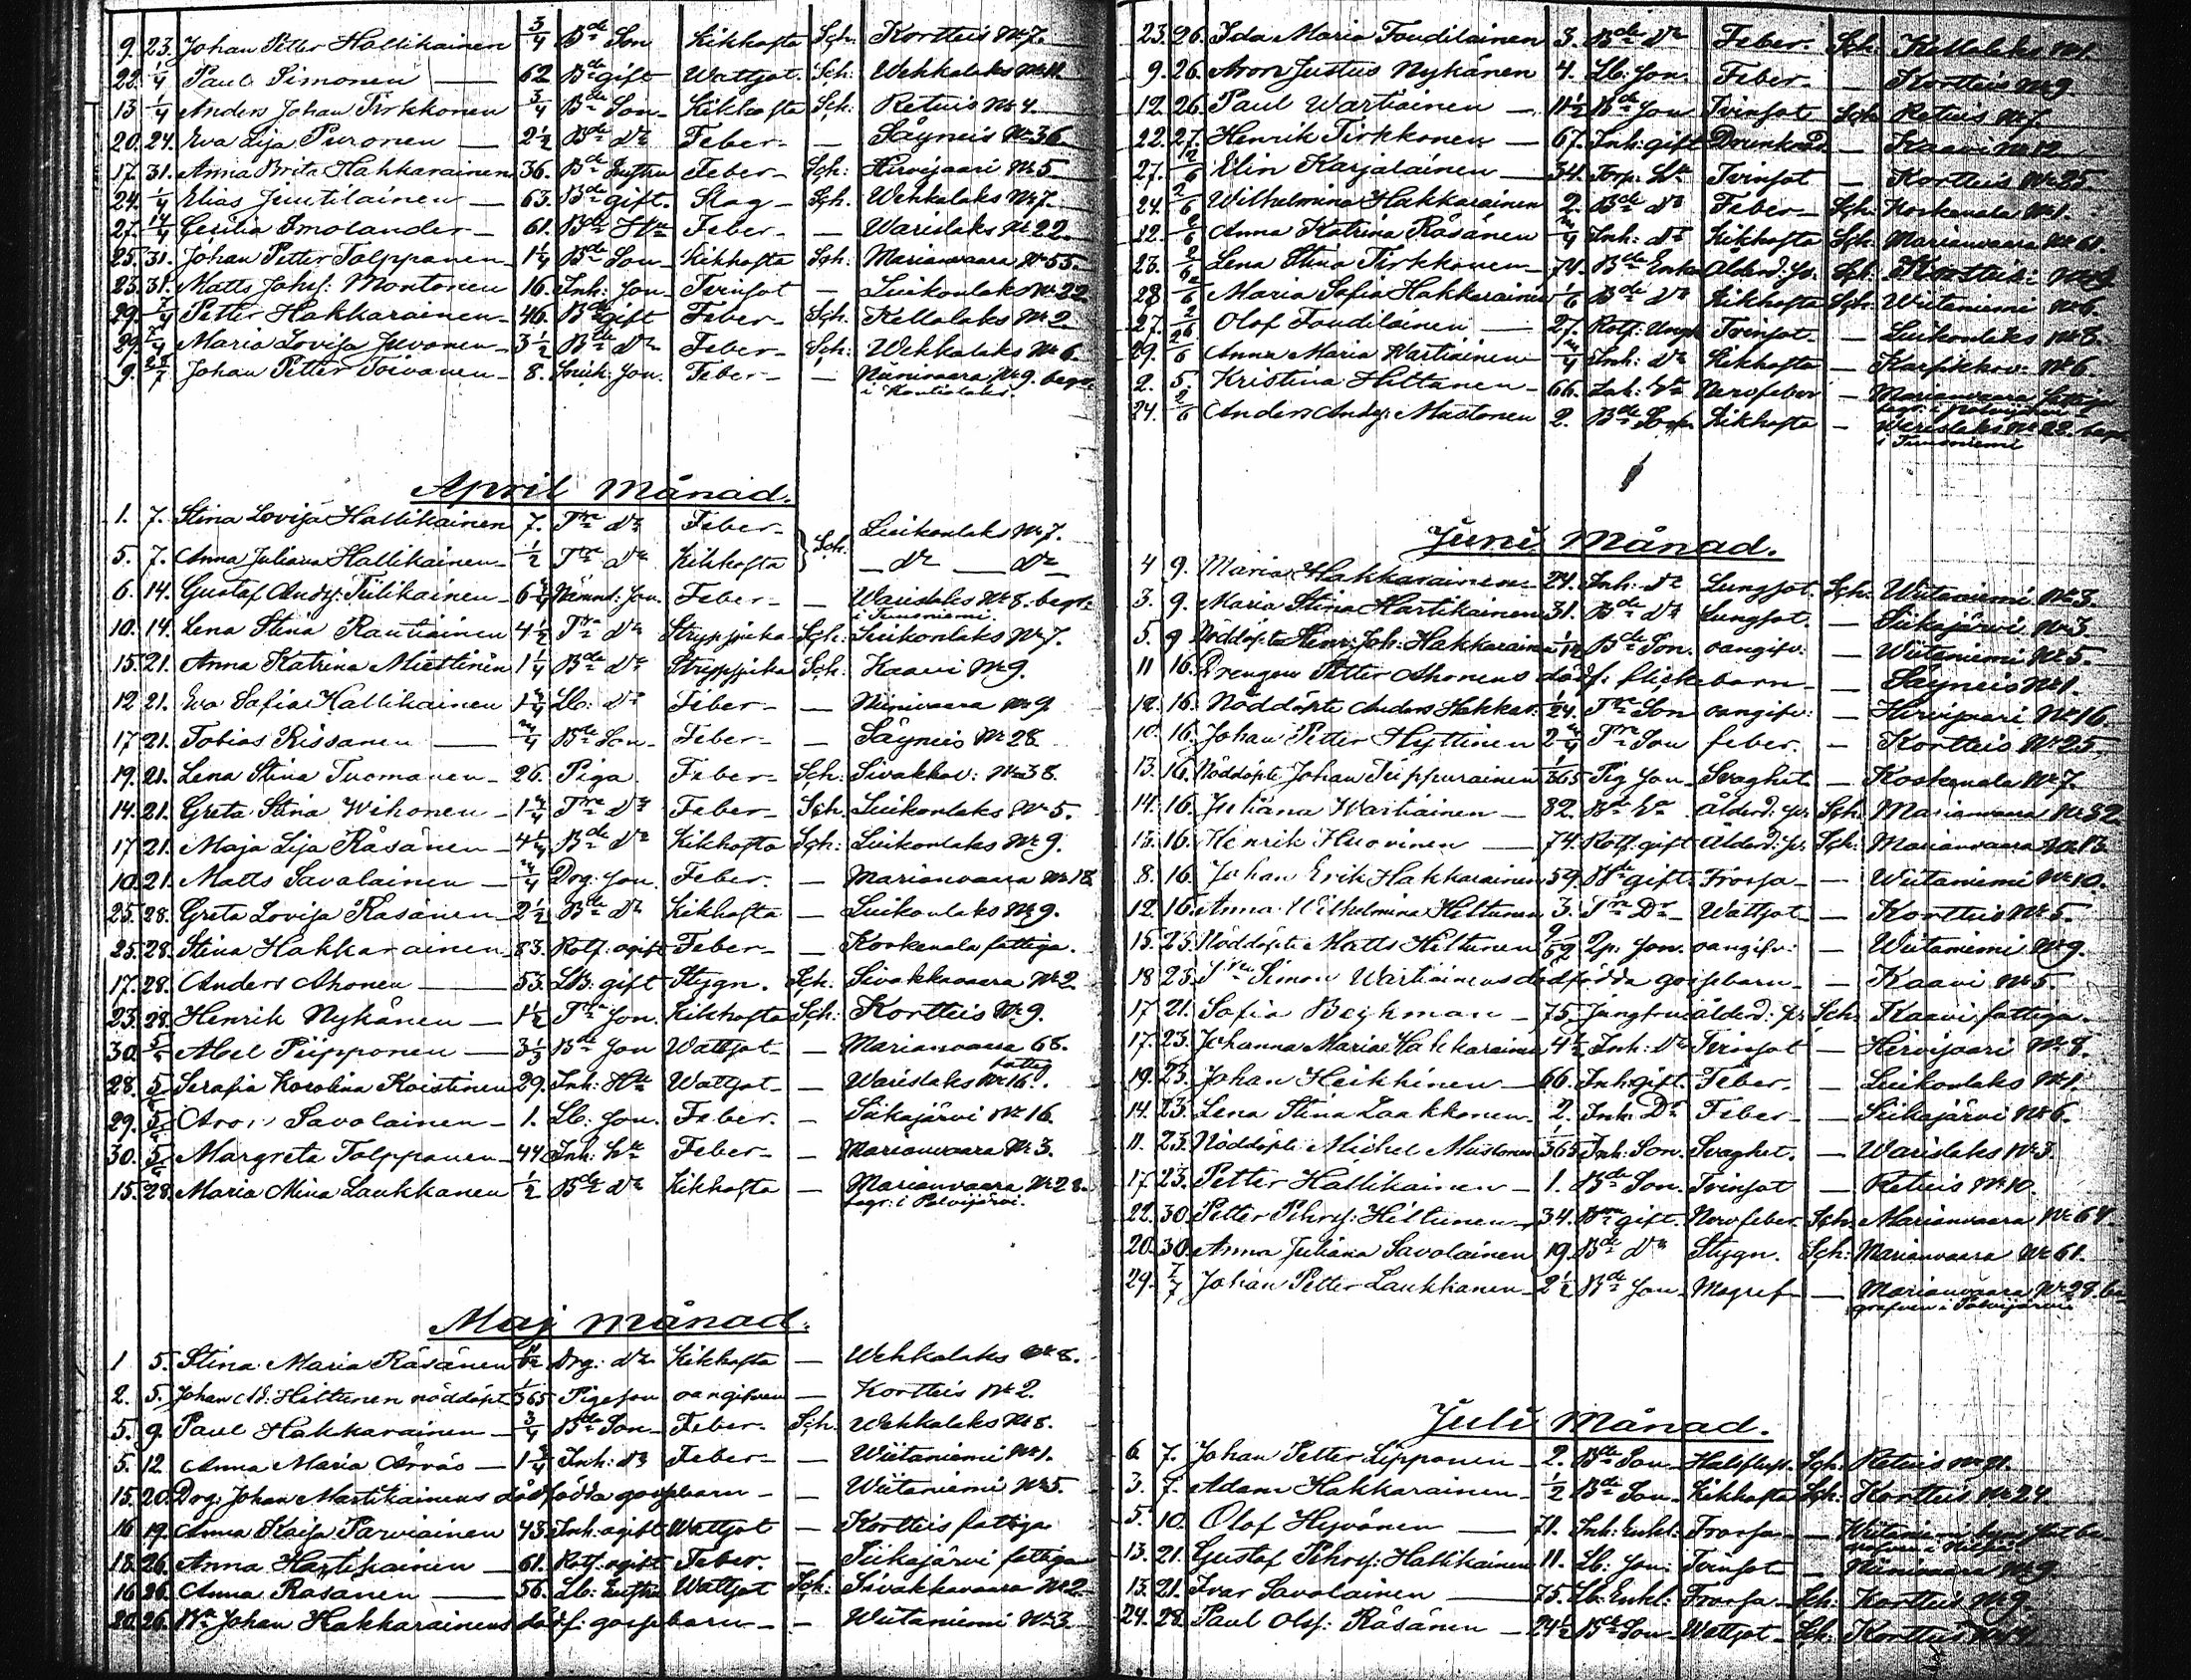 9. 23. Johan Petter Hallikainen 3/4 Bde Son Kikhosta Sch. Kortteis No 7.
22. 1/4 Paul Simonen — 62 Bde gift Wattsot. Sch: Wehkalaks No 11.
13 1/4 Anders Johan Tirkkonen 3/4 Bde Son Kikhosta Sch: Retuis No 4.
20. 24. Eva Lisa Puronen — 2 1/2 Bde Dr Feber — Säyneis No 36
17. 31. Anna Brita Hakkarainen 36. Bde hustru Feber Sch: Hirvisaari No 5.
24. 1/4 Elias Juutilainen — 63. Bde gift. Slag Sch. Wehkalaks No 7.
27. 14/4 Cecilia Smolander — 61. Feber — Warislaks No 22.
25. 31. Johan Petter Tolppanen 1 1/4 Bde Son Kikhosta Sch: Marianvaara No 55.
23. 31. Matts Johs: Montonen 16. Inh: Son Tvinsot — Luikonlaks No 22
29. 7/4 Petter Hakkarainen 46. Bde gift Feber Sch. Kettolaks No 2.
29. 7/4 Maria Lovisa Juvonen 3 1/2 Bde Dr Feber Sch: Wehkalaks No 6.
9. Johan Petter Toivanen 8. Son. Feber — Niinivaara No 9. begr.
i Kontiolaks.
April Månad.
1. 7. Stina Lovisa Hallikainen 7. Trn Dr Feber Sch. Luikonlaks No 7.
5. 7. Anna Juliana Hallikainen 1/2 Trn Dr Kikhosta — dr — dr
6. 14. Gustaf Andrs: Tiilikainen 6 3/4 Nämnd: Son. Feber — Warislaks No 8. begr.
i Tuusniemi.
10. 14. Lena Stina Rautiainen 4 1/2 Trn Dr Strypsjuka Sch. Luikonlaks No 7.
15. 21. Anna Katrina Miettinen 1 1/4 Bde Dr Strypsjuka Sch: Kaavi No 9.
12 21. Eva Sofia Hallikainen 1 3/4 Lb: Dr Feber — Niinivaara No 9
17 21. Tobias Rissanen — 3/4 Bde Son Feber — Säyneis No 28.
19. 21. Lena Stina Tuomanen 26. Piga Feber Sch: Sivakkav: No 38.
14. 21. Greta Stina Wihonen 1 3/4 Trn Dr Feber Sch. Luikonlaks No 5.
17 21. Maja Lisa Räsänen 4 1/4 Bde Dr Kikhosta Sch: Luikonlaks No 9.
10. 21. Matts Savolainen — 3/4 Drg. Son. Feber. — Marianvaara No 18.
25. 28. Greta Lovisa Räsänen 2 1/2 Bde Dr Kikhosta — Luikonlaks No 9.
25. 28. Stina Hakkarainen 83. Rotf. ogift Feber — Koskenala fattiga.
17. 28. Anders Ahonen — 53. LB: gift Stygn. Sch. Sivakkavaara No 2.
23. 28. Henrik Nykänen — 1 1/2 Trn Son. Kikhosta Sch: Kortteis No 9.
30. 5/5 Abel Piipponen — 3 1/3 Bde Son Wattsot — Marianvaara 68.
28. 5/5 Serafia Karolina Koistinen 29. Inh: Wattsot — Warislaks No 16. fattig
29. 5/5 Aron Savolainen 1. Lb: Son. Feber. — Siikajärvi No 16.
30. 5/5 Margreta Tolppanen 44 Inh: Feber — Marianvaara No 3.
15. 28. Maria Mina Laukkanen 1/2 Bde Dr Kikhosta — Marianvaara No 28.
begr: i Polvijärvi.
Maj månad.
1 5. Stina Maria Räsänen Drg: Dr Kikhosta — Wehkalaks No 8.
2. 5. Johan Hiltunen nöddöpt 1/365 Piges son oangifven — Kortteis No 2.
5. 9. Paul Hakkarainen 3/4 Bde Son Feber Sch. Wehkalaks No 8.
5. 12 Anna Maria Orvas — 1 3/4 Inh: Dr Feber — Wiitaniemi No 1.
15. 20. Drg: Johan Martikainens dödfödda gossebarn — Wiitaniemi No 5.
16 19. Anna Kaisa Parviainen 43. Inh: ogift Wattsot — Kortteis fattiga
18. 26. Anna Hartikainen — 61. Rotf: ogift Feber. — Siikajärvi fattiga
16 26. Anna Räsänen — 56. Lb: hustru Wattsot Sch: Sivakkavaara No 2.
20. 26. Bn Johan Hakkarainens dödf: gossebarn — Wiitaniemi No 3.
23. 26. Ida Maria Toudilainen 3. Bde Dr Feber. Sch. Kettolaks No 1.
9. 26. Aron Justus Nykänen 4. Lb: Son. Feber — Kortteis No 9.
12. 26. Paul Wartiainen — 11 1/2 Bde Son Tvinsot Sch: Retuis No 7.
22. 27. Henrik Tirkkonen — 67. Inh: gift Drunknad — Kaavi No 12
27. 2/6 Elin Karjalainen — 34. Torp: Tvinsot — Kortteis No 25.
24. 2/6 Wilhelmina Hakkarainen 2. Bde Dr Feber Sch: Koskenala No 1.
22. 2/6 Anna Katrina Räsänen 3/4 Inh: Dr Kikhosta Sch: Marianvaara No 61.
23. 2/6 Lena Stina Tirkkonen 74. Bde Enka Ålderd: Sch. Kortteis No
28 2/6 Maria Sofia Hakkarainen 1/6 Bde Dr Kikhosta Sch. Wiitaniemi No 6.
27. 2/6 Olof Toudilainen — 27. Rotf: Tvinsot. — Luikonlaks No 8.
29. 2/6 Anna Maria Wartiainen 3/4 Inh: Dr Kikhosta — Karsikkov: No 6.
2. 5. Kristina Hiltunen 66. Inh: Nervfeber — Marianvaara fattiga
begr. i Polvijärvi
24. 2/6 Anders Andrs: Mustonen 2. Bde Son Kikhosta — Warislaks No 22. begr.
i Tuusniemi
Juni Månad.
4 9. Maria Hakkarainen 24. Inh: Dr Lungsot. Sch. Wiitaniemi No 3.
3. 9. Maria Stina Hartikainen 31. Bde Dr Lungsot. — Siikajärvi No 3
5. 9 Nöddöpte Henr: Joh: Hakkarainen 1/12 Bde Son. oangifv: — Wiitaniemi No 5.
11 16. Drengen Petter Ahonens dödf: flickebarn — Säyneis No 1.
12. 16. Nöddöpte Anders Hakkar: 1/24. Trn Son oangifv: — Hirvisaari No 16
10. 16. Johan Petter Hyttinen 2 3/4 Trn Son feber. — Kortteis No 25.
13. 16. Nöddöpte Johan Piippurainen 1/365 Pig Son Svaghet — Koskenala No 7.
14. 16. Juliana Wartiainen — 82. Ålderd: Sch: Marianvaara No 32
13. 16. Henrik Huovinen — 74. Rotf. gift Ålderd: Sch: Marianvaara No 13
8. 16. Johan Erik Hakkarainen 59. Bde gift Frossa — Wiitaniemi No 10.
12. 16. Anna Wilhelmina Hiltunen 3. Trn Dr Wattsot — Kortteis No 5.
15. 23. Nöddöpte Matts Hiltunen 2/52 Son. oangifv: — Wiitaniemi No 9.
18 23. Trn Simon Wartiainens dödfödda gossebarn — Kaavi No 5.
17 21. Sofia Bergman — 75. Jungfru ålderd: Sch. Kaavi fattiga.
17. 23. Johanna Maria Hakkarainen 4 1/2 Inh: Dr Tvinsot — Hirvisaari No 8.
19. 23. Johan Heikkinen — 66. Inh: gift. Feber. — Luikonlaks No 1.
14. 23. Lena Stina Laakkonen 2. Inh: Dr Feber — Siikajärvi No 6.
11. 23. Nöddöpte Michel Mustonen 1/365 Inh: Son. Svaghet. — Warislaks No 3
17. 23. Petter Hallikainen — 1. Bde Son. Tvinsot — Retuis No 10.
22. 30. Petter Pehrs: Hiltunen 34. gift. Nervfeber Sch. Marianvaara No 64.
20. 30. Anna Juliana Savolainen 19. Bde Dr Stygn. Sch: Marianvaara No 61.
29. 7/7 Johan Petter Laukkanen 2 1/2 Bde Son Magref — Marianvaara No 28. be-
grafven i Polvijärvi
Juli Månad.
6. 7. Johan Petter Lipponen 2. Bde Son Halsfluss. Sch. Retuis No 21.
3. 7. Adam Hakkarainen 1/2 Bde Son Kikhosta Sch: Kortteis No 24.
5. 10. Olof Hyvönen — 71. Inh: Enkl: Frossa — Wiitaniemi be-
grafven i
13. 21. Gustaf Pehrs: Hallikainen 11. Lb: Son: Tvinsot — Niinivaara No 9.
13. 21. Ivar Savolainen — 75. Lb: Enkl: Frossa Sch: Kortteis No 9.
24. 28. Paul Olss: Räsänen — 24 1/2 Bde Son Wattsot Sch: Kortteis No